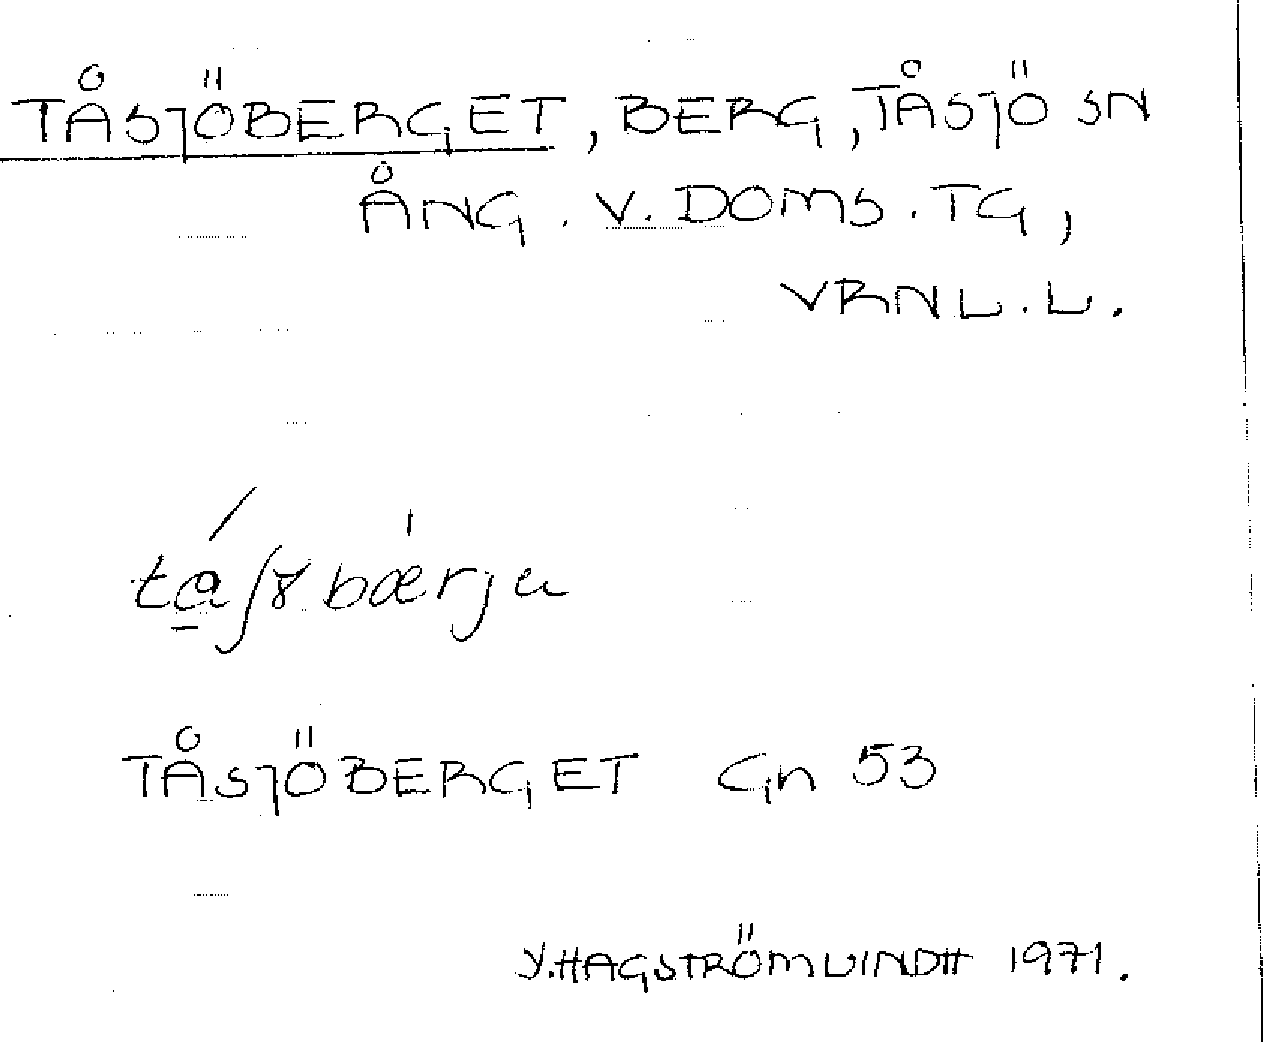 TÅSJÖBERGET, BERG, TÅSJÖ SN
ÅNG. V. DOMS. TG,
VRNL. L.
TÅSJÖBERGET Gn 53
Y. HAGSTRÖM LINDH 1971.